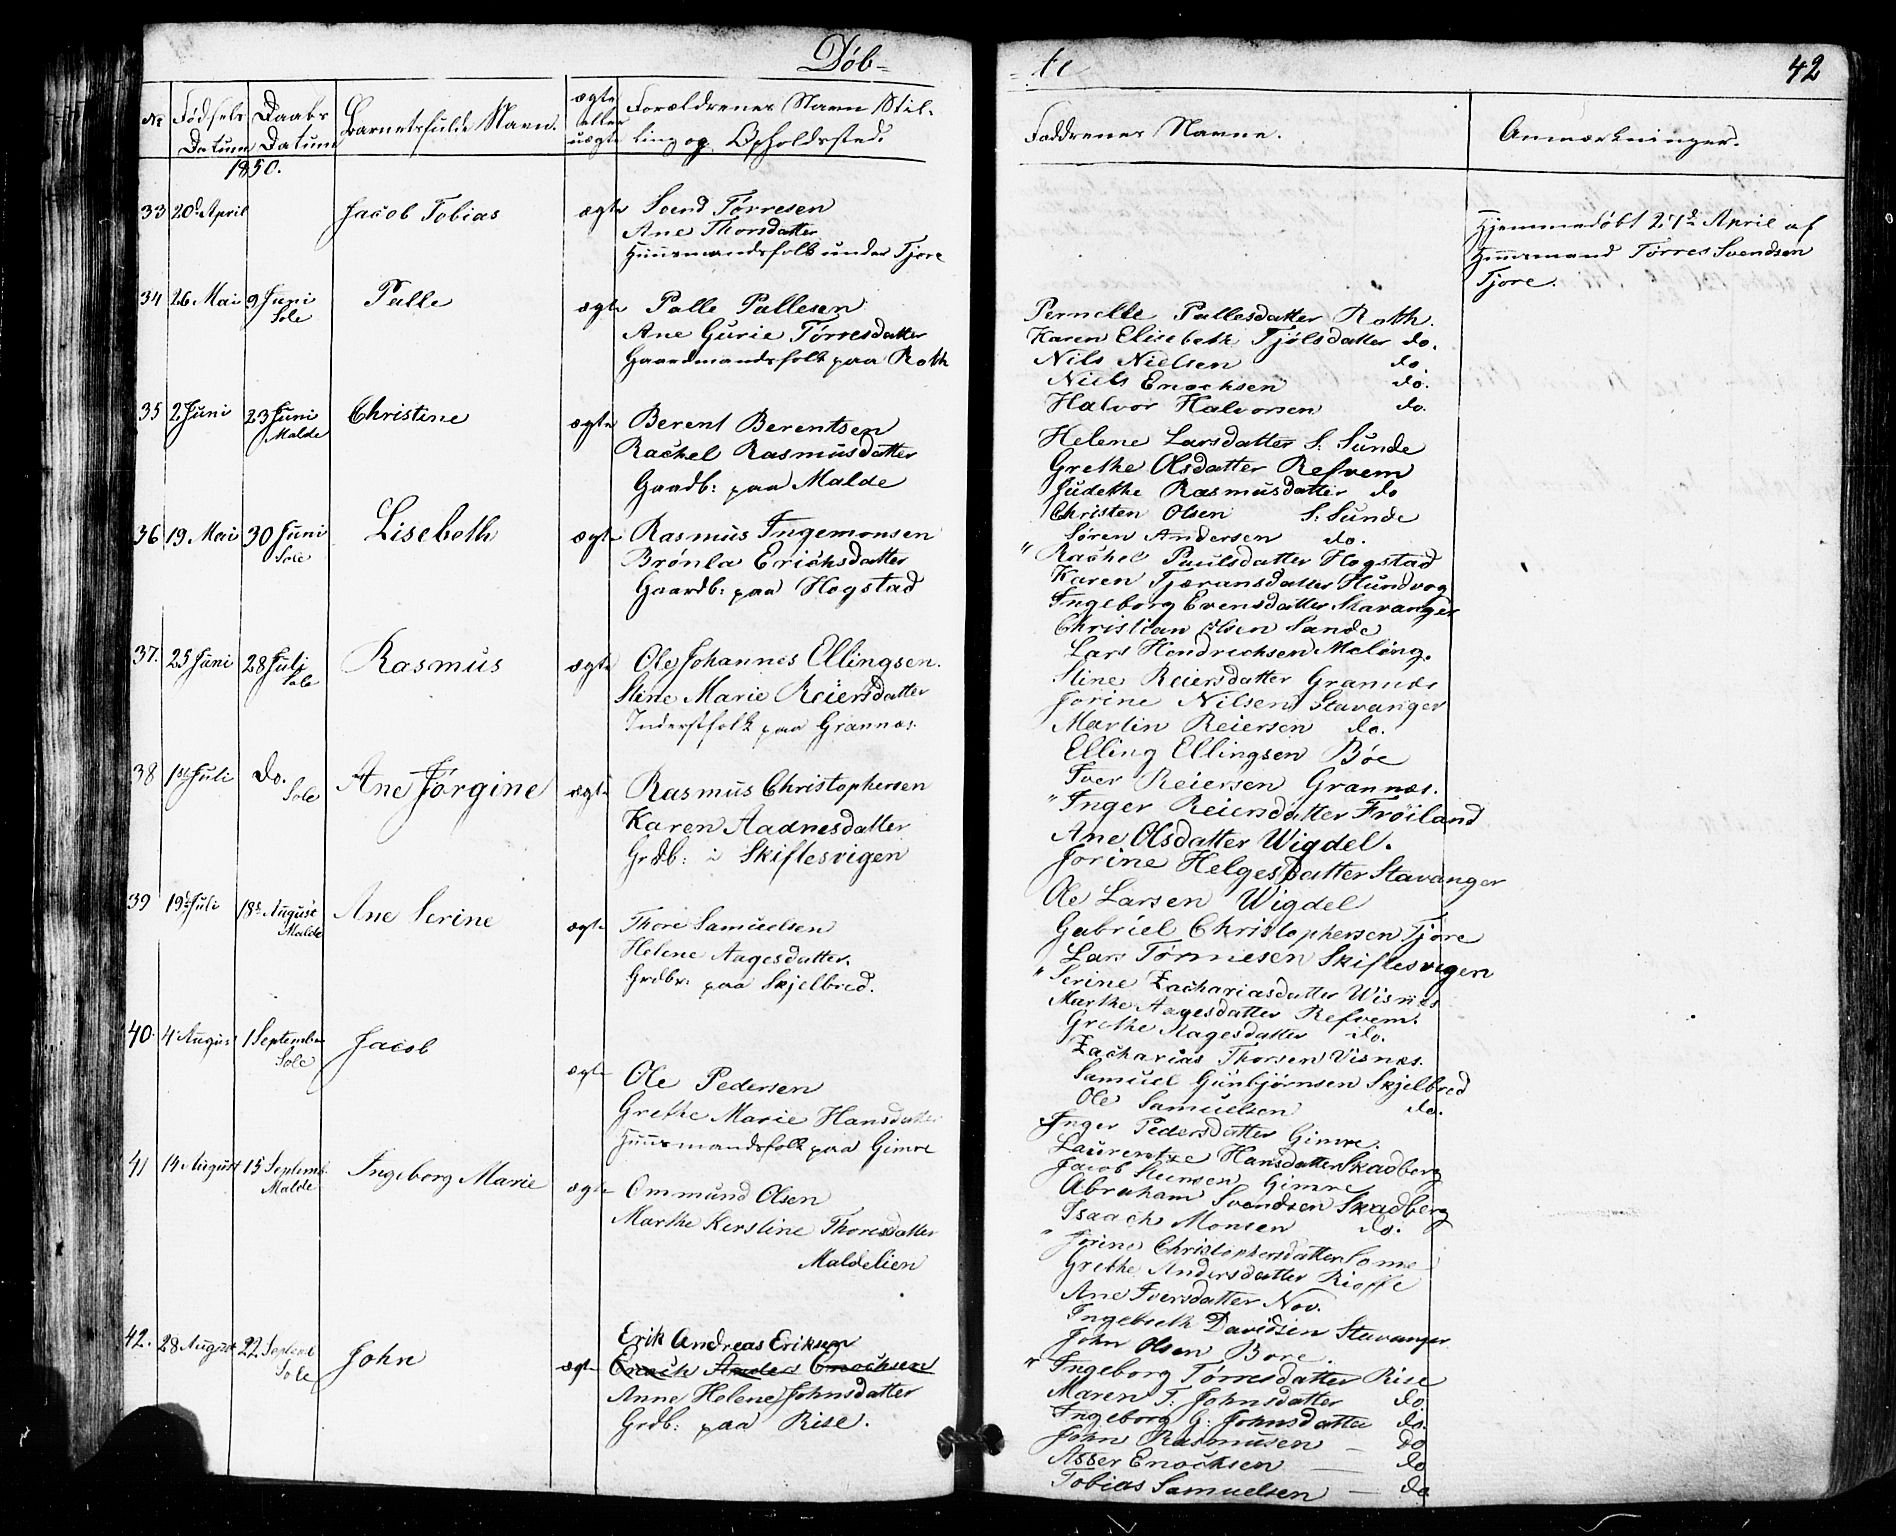 Døb-
te
42
No
Fødsels
Datum
Daabs
Datum
Barnets fulde Navn.
ægte
eller
uægte
Forældrenes Navn Stil-
ling og Opholdssted.
Faddrenes Navne.
Anmærkninger.
1850.
33 20d April Jacob Tobias ægte Svend Tørresen
Ane Thorsdatter
Huusmandsfolk under Tjore
Hjemmedøbt 27de April af
Huusmand Tørres Svendsen
Tjore.
34 26 Mai 9 Juni Palle ægte Palle Pallesen
Sole
Ane Gurie Tørresdatter
Gaardmandsfolk paa Roth
Pernelle Pallesdatter Roth.
Karen Elisebeth Tjølsdatter do.
Nils Nielsen do.
Niels Enochsen do.
Halvor Halvorsen do.
35 2 Juni 23 Juni Christine ægte Berent Berentsen
Malde
Rachel Rasmusdatter
Gaadb: paa Malde
Helene Larsdatter S: Sunde
Grethe Olsdatter Refvem
Judethe Rasmusdatter do
Christen Olsen S: Sunde
Søren Andersen do.
36 19 Mai 30 Juni Lisebeth ægte Rasmus Ingemonsen
Sole
Brønla Erichsdatter
Gaardb: paa Hogstad
" Rachel Paulsdatter Hogstad
Karen Tjæransdatter Hundvog
Ingeborg Evensdatter Stavanger
Christian Olsen Sande
Lars Hendrichsen Maling.
37. 25 Juni 28 Juli Rasmus ægte Ole Johannes Ellingsen.
Sole
Stine Marie Reiersdatter
Inderstfolk paa Grannæs.
Stine Reiersdatter Grannæs
Jorine Nilsen Stavanger
Martin Reiersen do.
Elling Ellingsen Bøe
Iver Reiersen Grannæs.
38 1st Juli do. Ane Jørgine ægte Rasmus Christophersen
Sole
Karen Aadnesdatter
Grdb: i Skiftesvigen
" Inger Reiersdatter Frøiland
Ane Olsdatter Wigdel.
Jorine Helgesdatter Stavanger
Ole Larsen Wigdel
Gabriel Christophersen Tjore
Lars Tønnesen Skiftesvigen
39 19 Juli 18 August Ane Serine ægte Thore Samuelsen
Malde
Helene Aagesdatter.
Grdbr: paa Skjelbred.
" Serine Zachariasdatter Wisnes
Marthe Aagesdatter Refvem.
Grethe Aagesdatter do.
Zacharias Thorsen Visnæs.
Samuel Gunbjørnsen Skjelbred
Ole Samuelsen do.
40. 4 August 1 September Jacob ægte Ole Pedersen
Sole
Grethe Marie Hansdatter
Huusmandsfolk paa Gimre
Inger Pedersdatter Gimre.
Laurentze Hansdatter Skadberg
Jacob Steensen Gimre
Abraham Svendsen Skadberg
Isaach Monsen do.
41 14 August 15 Septemb. Ingeborg Marie ægte Ommund Olsen
Malde
Marthe Kerstine Thoresdatter
Maldelien
" Jorine Christophersdatter Some
Grethe Andersdatter
Ane Iversdatter Nov.
Ingebreth Davidsen Stavanger
John Olsen Bore.
42. 28 August 22 Septemb John ægte Erik Andreas Eriksen
Sole
Anne Helene Johnsdatter
Grdb: paa Rise.
" Ingeborg Tørresdatter Rise
Maren T: Johnsdatter do.
Ingeborg G: Johnsdatter do.
John Rasmusen — do
Asser Enochsen — do
Tobias Samuelsen — do